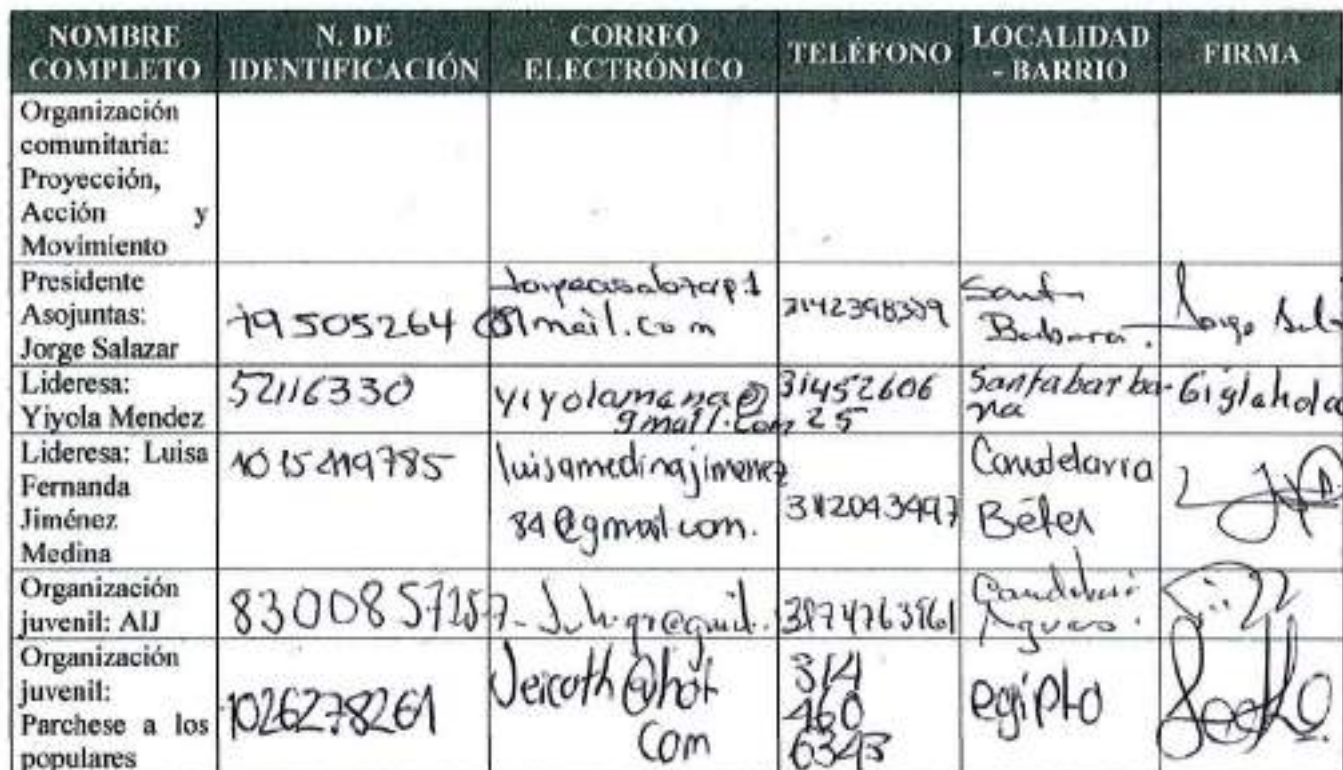 NOMBRE COMPLETO
N. DE IDENTIFICACIÓN
CORREO ELECTRÓNICO
TELÉFONO
LOCALIDAD - BARRIO
FIRMA
Organización
comunitaria:
Proyección,
Acción y
Movimiento
Presidente
Asojuntas:
Jorge Salazar
79505264
@gmail.com
Santa
Barbara.
Jorge
Lideresa:
Yiyola Mendez
52116330
yiyolamena@
gmail.com
31452606
25
Santabarba
ra
Lideresa: Luisa
Fernanda
Jiménez
Medina
luisamedinajimenez
84@gmail.com.
3112043497
Candelaria
Belen
Organización
juvenil: AIJ
Organización
juvenil:
Parchese a los
populares
1026278261
314
460
6343
egipto